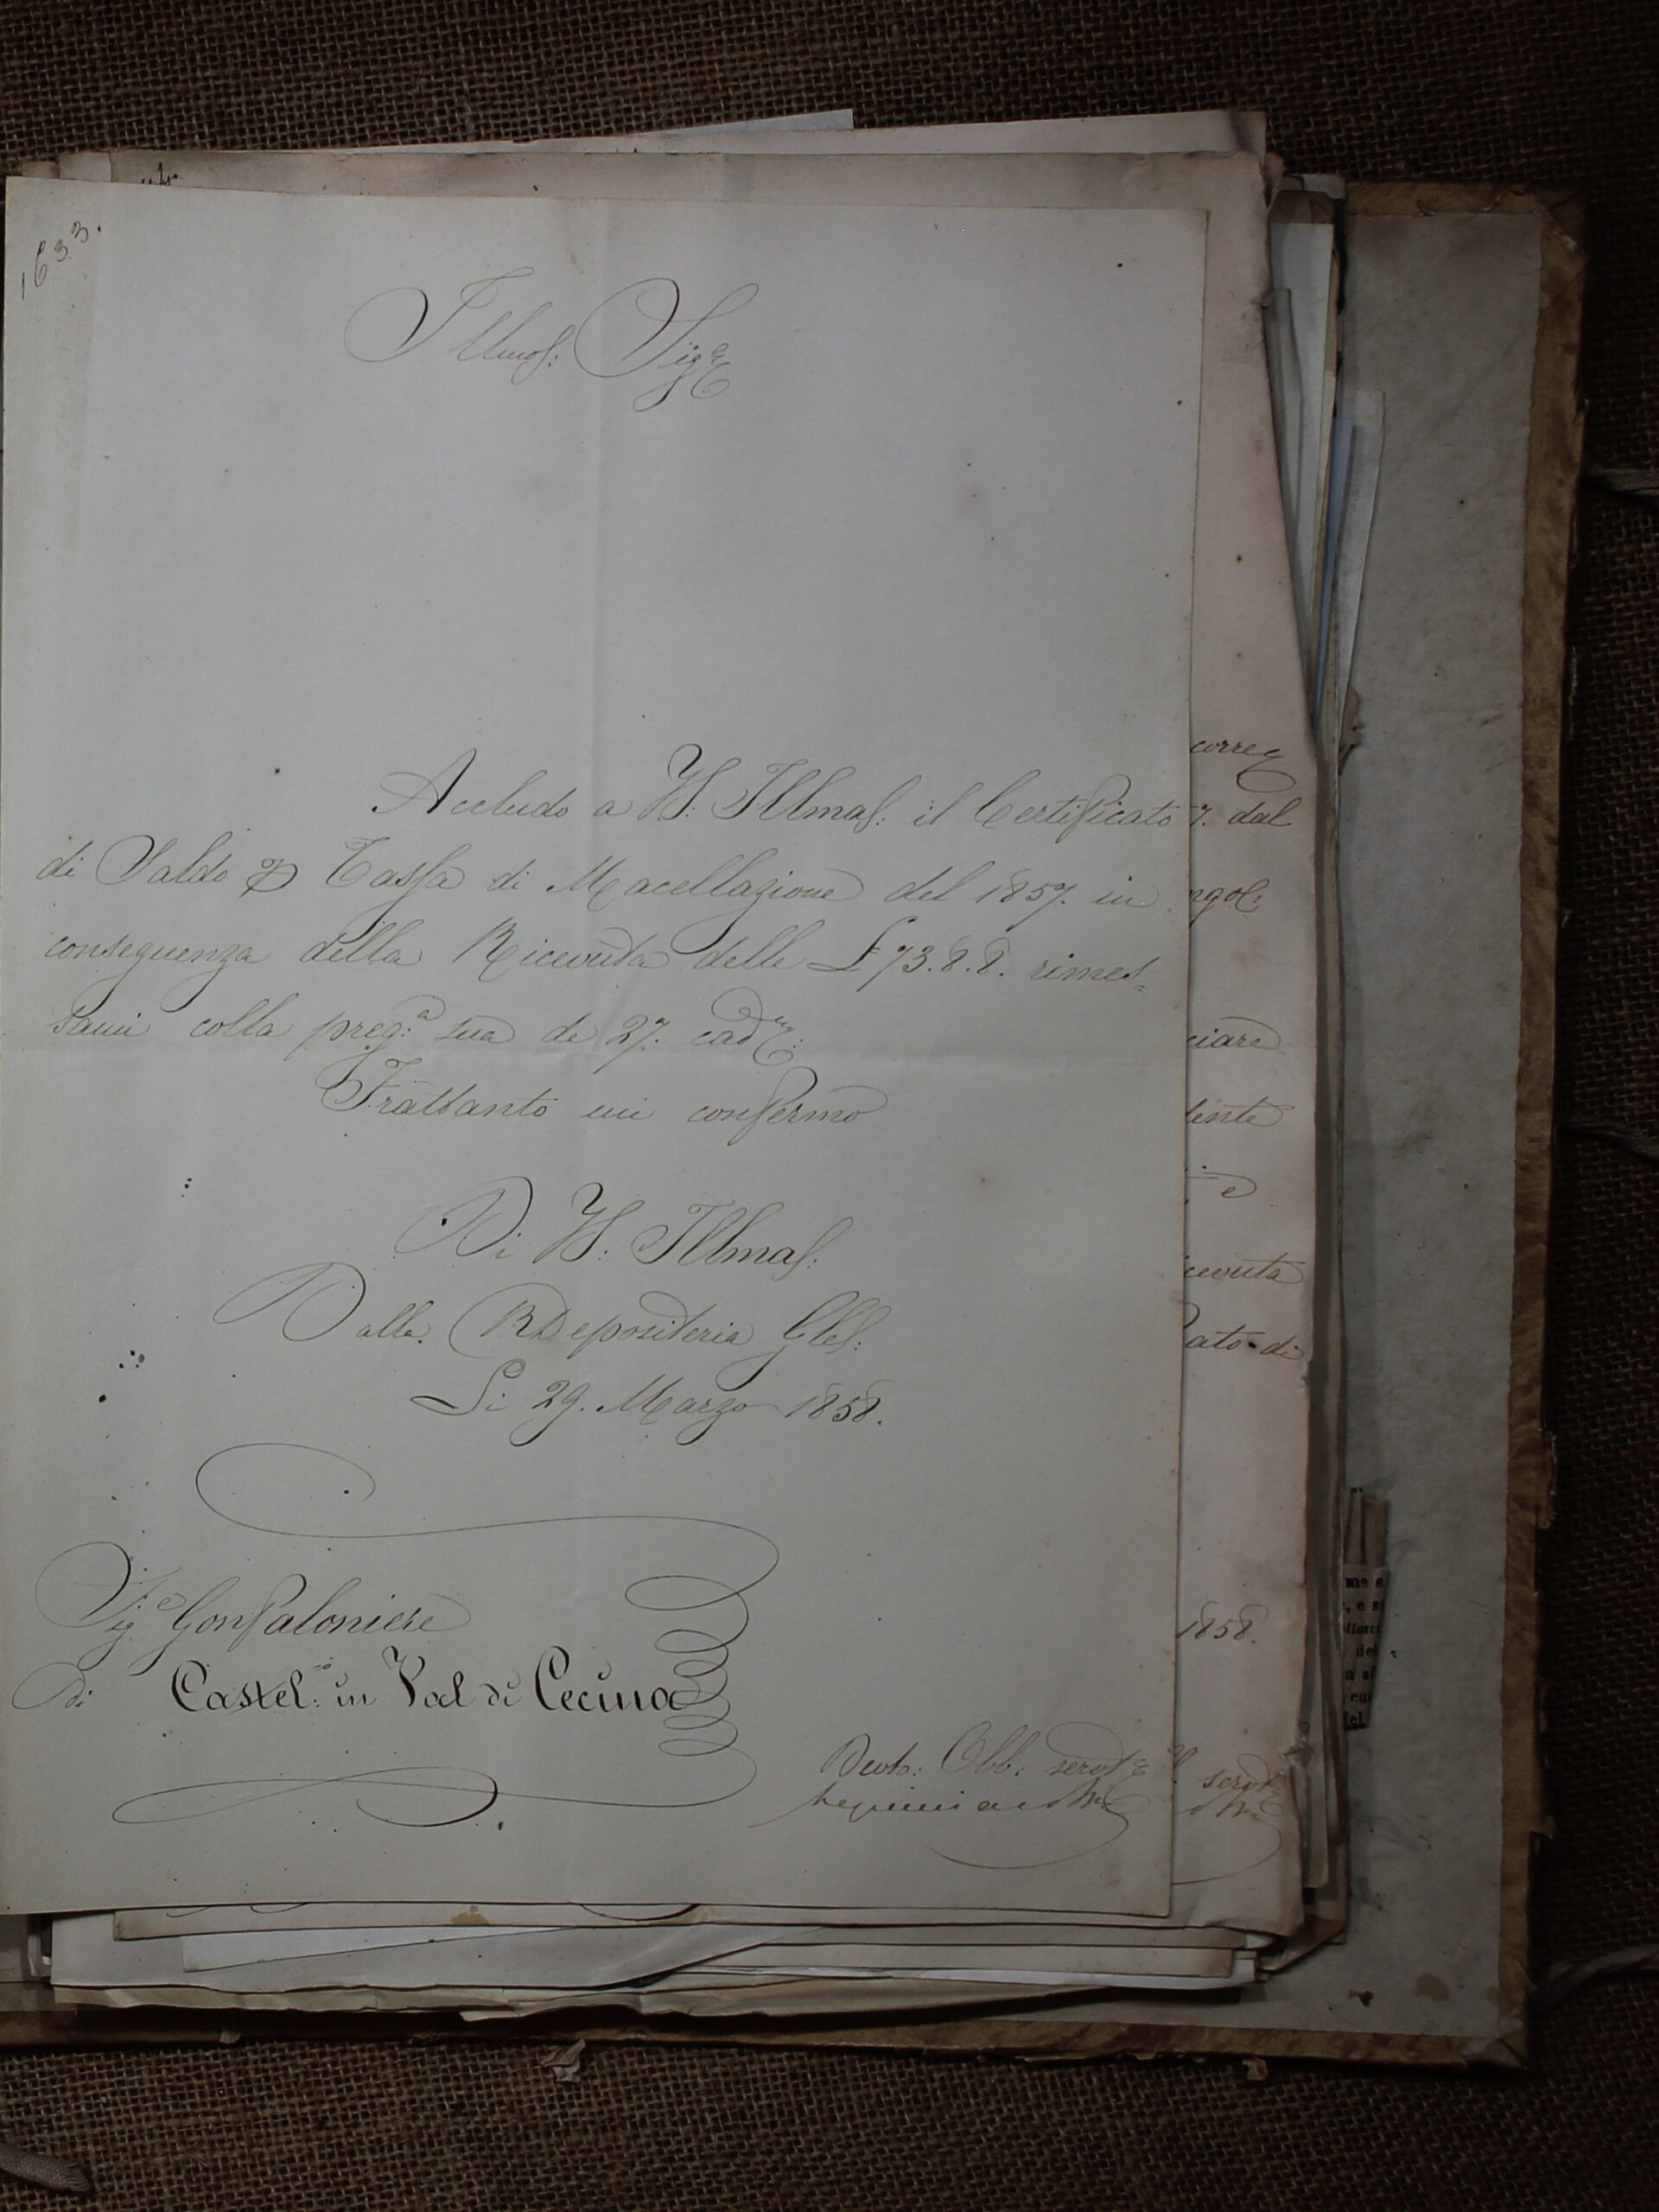 1633.
Illmos: Sigre
Accludo a VS: Illmas: il Certificato
di Saldo p Tassa di Macellazione del 1857. in
conseguenza della Ricevuta delle £ 73.8.8. rimes=
sami colla preg:a sua de 27. cadte:
Frattanto mi confermo
Di VS: Illmas:
Dalla R Depositeria Gles:
Li 29. Marzo 1858.
Sige Gonfaloniere
di Castel: in Val di Cecina
Devto: Obb. servte
correg
7. dal
ngol:
ciare
dente
e
cevuta
cato di
1858.
servte
me e
, e s
del